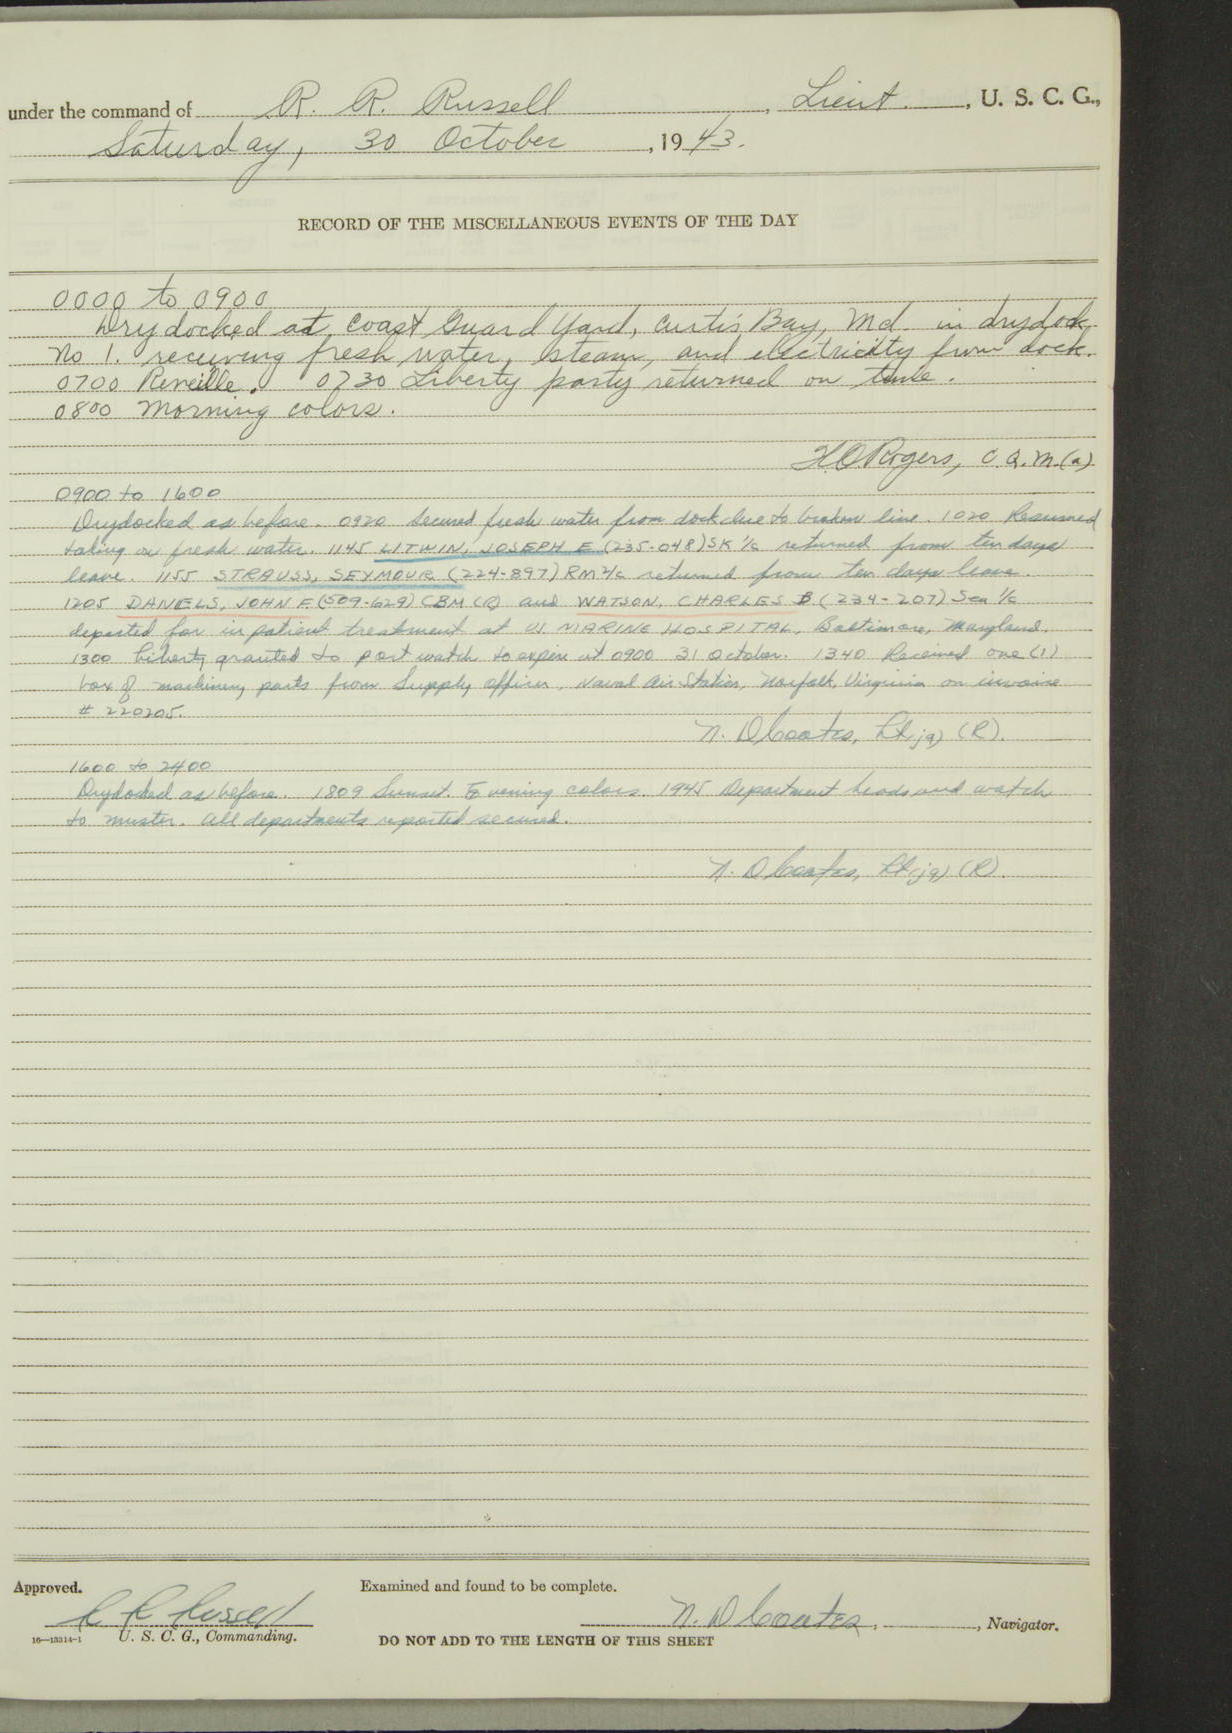 under the command of R. R. Russell, Lieut., U. S. C. G.,
Saturday, 30 October, 1943.
RECORD OF THE MISCELLANEOUS EVENTS OF THE DAY
0000 to 0900
Drydocked at Coast Guard Yard, Curtis Bay, Md. in drydock
No 1. receiving fresh water, steam, and electricity from dock.
0700 Reveille. 0730 Liberty party returned on time.
0800 Morning colors.
H O Rogers, C.Q.M.(a)
0900 to 1600
Drydocked as before. 0920 Secured fresh water from dock due to broken line. 1020 Resumed
taking on fresh water. 1145 LITWIN, JOSEPH E (235-048) SK 1/c returned from ten days
leave. 1155 STRAUSS, SEYMOUR (224-897) RM 2/c returned from ten days leave.
1205 DANIELS, JOHN F (509-629) CBM (R) and WATSON, CHARLES B (234-207) Sea 1/c
departed for in patient treatment at US MARINE HOSPITAL, Baltimore, Maryland.
1300 Liberty granted to port watch to expire at 0900 31 October. 1340 Received one (1)
box of machinery parts from Supply Officer, Naval Air Station, Norfolk, Virginia on invoice
# 220205.
N. D Coates, Lt(jg) (R).
1600 to 2400
Drydocked as before. 1809 Sunset. Evening colors. 1945 Department heads and watch
to muster. All departments reported secured.
N. D Coates, Lt(jg) (R).
Approved.
Examined and found to be complete.
R R Russell
N. D Coates, , Navigator.
16—13314-1 U. S. C. G., Commanding.
DO NOT ADD TO THE LENGTH OF THIS SHEET